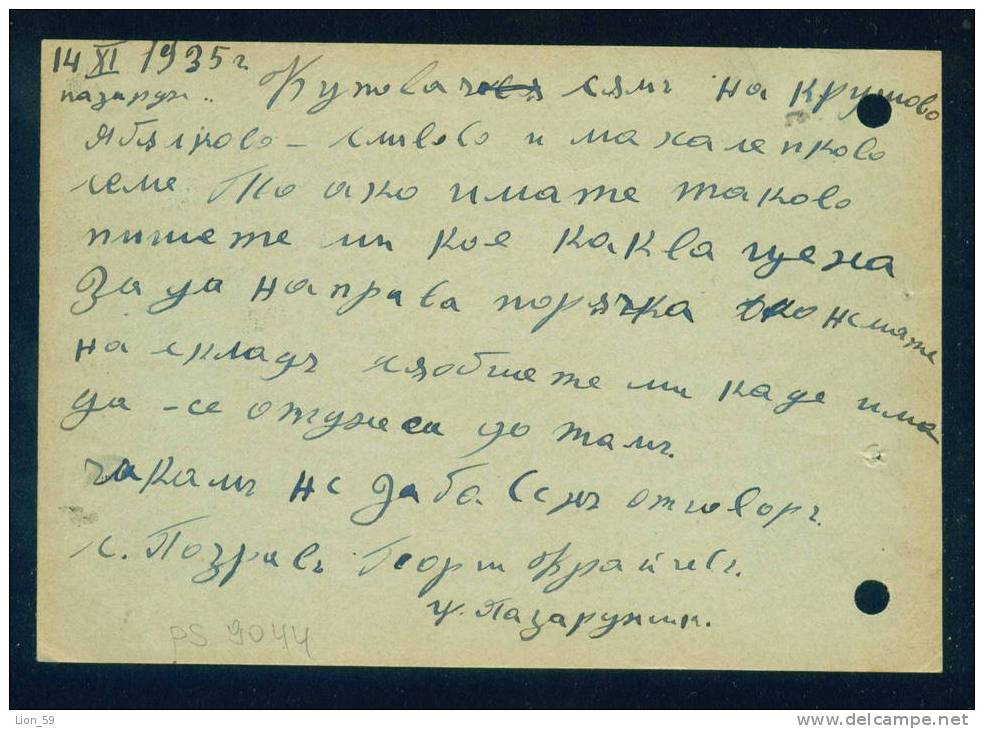 14 XI 1935 г.
пазардж.. Куповачъ сямъ на крушово
ябялково - сливово и махалепково
семе. Та ако имате таково
пишете ми кое каква цена
За да направа порячка ако немате
на складъ сяобшете ми каде има
да - се отнеса до тамъ.
чакамъ не забавенъ отговоръ.
с. Поздравъ Георги Крайчевъ.
гр. Пазарджик.
PS 9044
Lion_59
www.delcampe.net